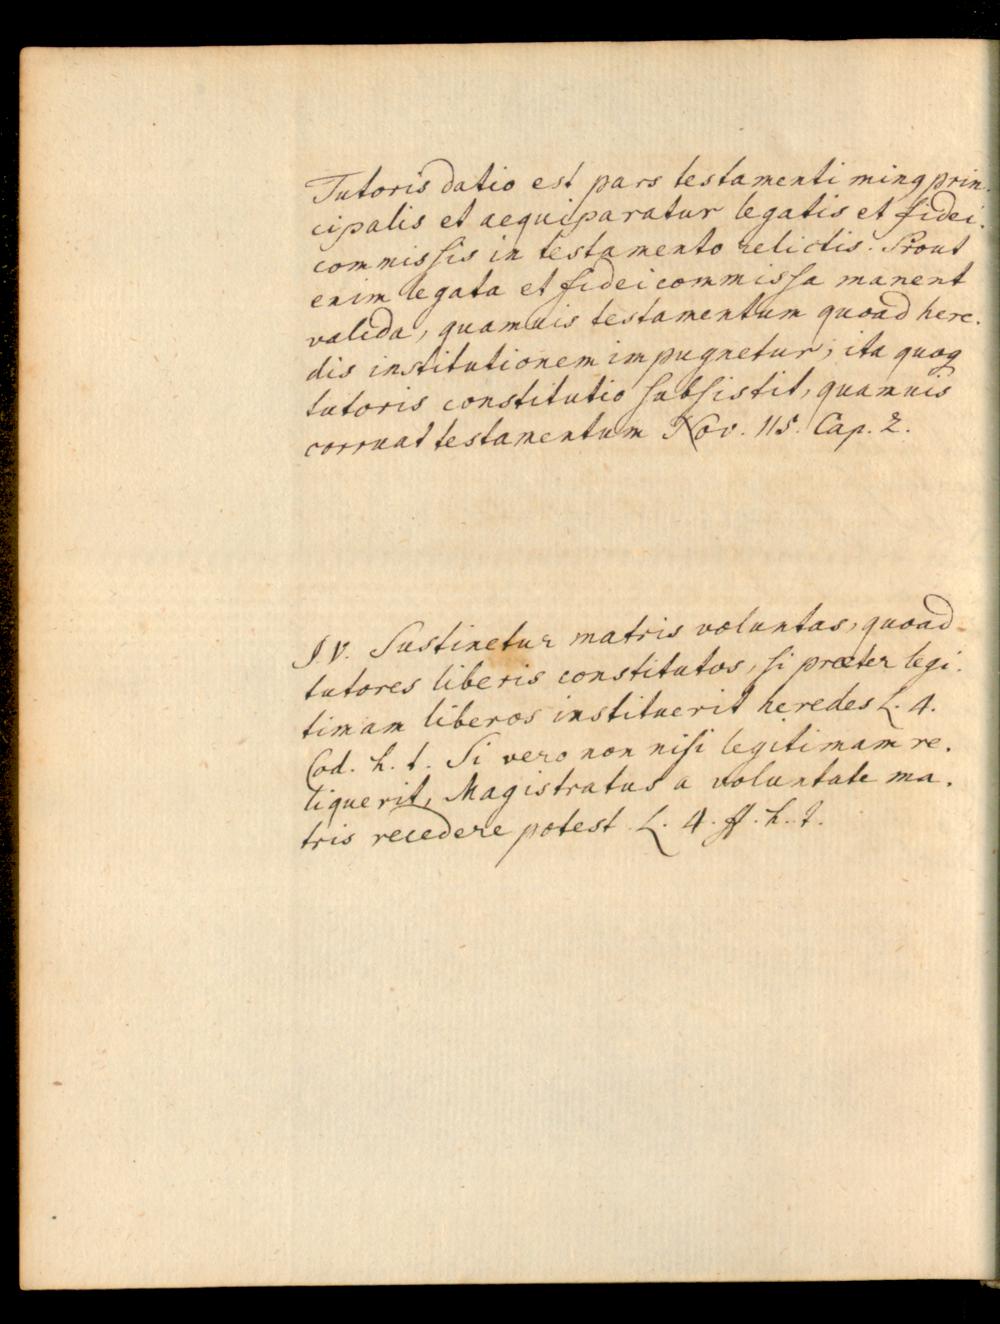 Tutoris datio est pars testamenti minq prin-
cipalis et aequiparatur legatis et fidei-
commissis in testamento relictis. Prout
enim legata et fideicommissa manent
valida, quamuis testamentum quoad here-
dis institutionem impugnetur, ita quoq
tutoris constitutio subsistit, quamuis
corruat testamentum Nov. 115. Cap. 2.
IV. Sustinetur matris voluntas, quoad
tutores liberis constitutos, si praeter legi-
timam liberos instituerit heredes L. 4.
Cod. h. t. Si vero non nisi legitimam re-
liquerit, Magistratus a voluntate ma-
tris recedere potest L. 4. ff. h. t.